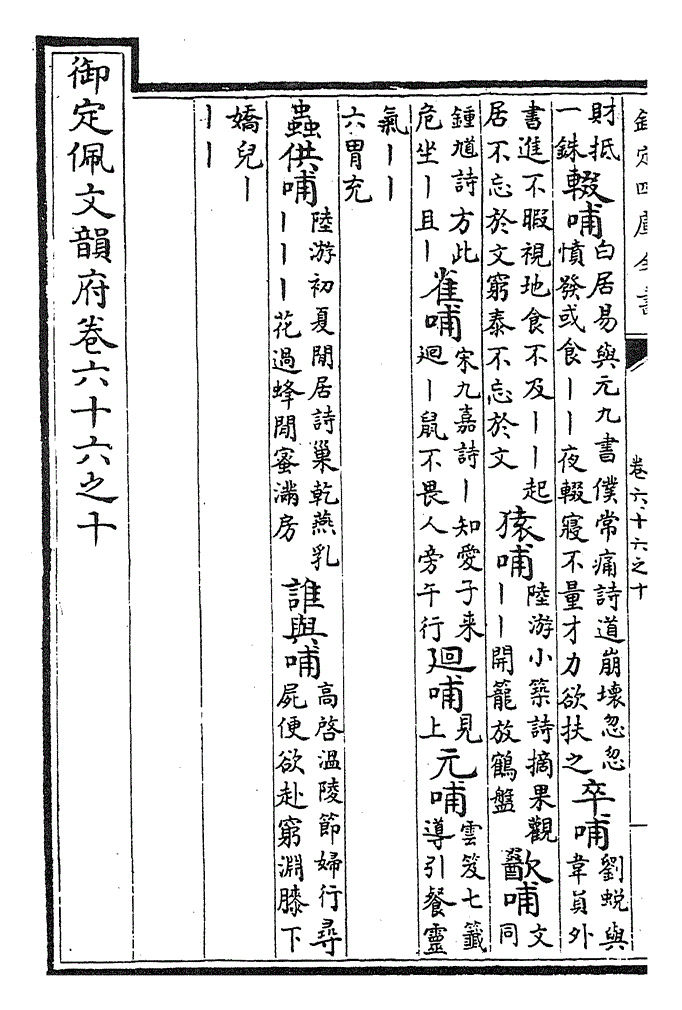 欽定四庫全書
卷六十六之十
財抵
一銖
輟哺
白居易與元九書僕常痛詩道崩壞忽忽
憤發或食丨丨夜輟寢不量才力欲扶之
卒哺
劉蛻與
韋員外
書進不暇視地食不及丨丨起
居不忘於文窮泰不忘於文
猿哺
陸游小築詩摘果觀
丨丨開籠放鶴盤
歠哺
文
同
鍾馗詩方此
危坐丨且丨
雀哺
宋九嘉詩丨知愛子来
廻丨鼠不畏人旁午行
廻哺
見
上
元哺
雲笈七籤
導引餐靈
氣丨丨
六胃充
蟲供哺
陸游初夏閒居詩巢乾燕乳
丨丨丨花過蜂閒蜜滿房
誰與哺
高啓溫陵節婦行尋
屍便欲赴窮淵膝下
嬌兒丨
丨丨
御定佩文韻府卷六十六之十